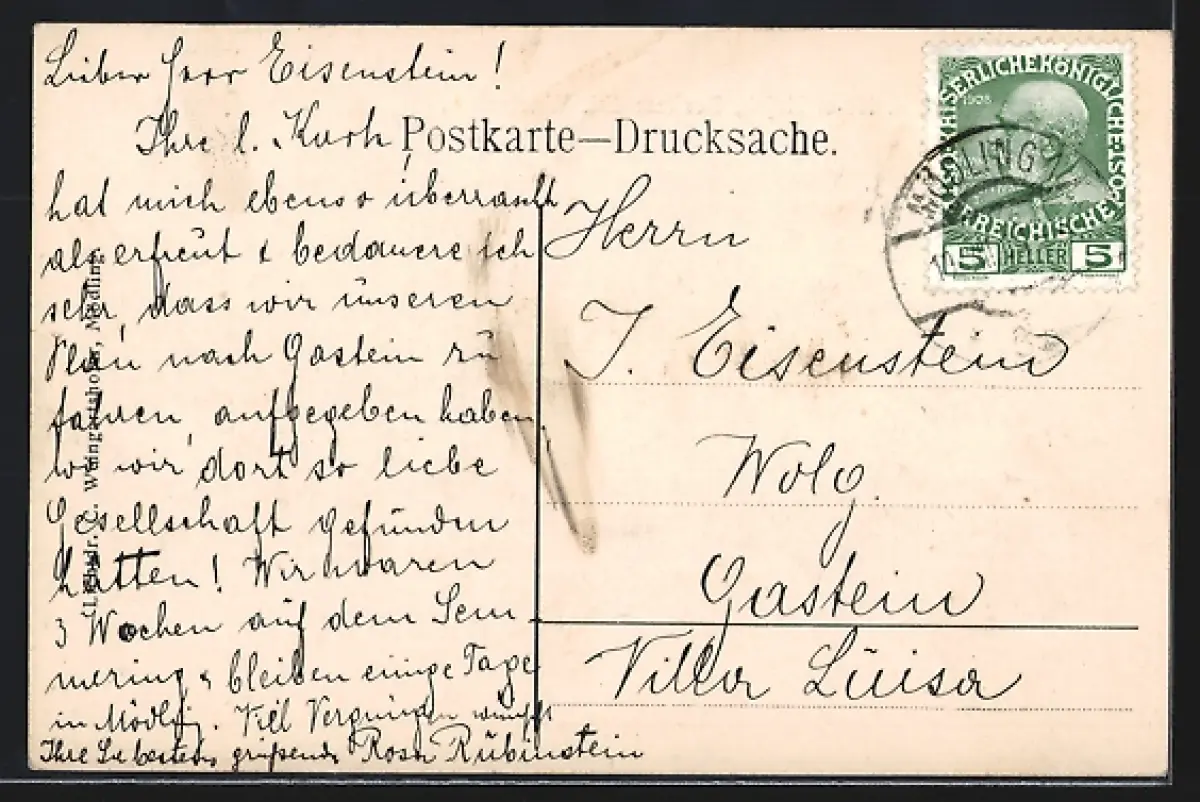 Lieber Herr Eisenstein!
Ihre l. Karte
hat mich ebenso überrascht
als erfreut & bedauere ich
sehr, dass wir unseren
Plan nach Gastein zu
fahren, aufgegeben haben,
wo wir dort so liebe
Gesellschaft gefunden
hatten! Wir waren
3 Wochen auf dem Sem-
mering & bleiben einige Tage
in Mödling. Viel Vergnügen wünscht
Ihre bestens grüßende Rosa Rubinstein
Postkarte—Drucksache.
Herrn
J. Eisenstein
Gastein
Villa Luisa
KAISERLICHE KÖNIGLICHE
ÖSTERREICHISCHE
1908
5 HELLER 5
MÖDLING
Mödling.